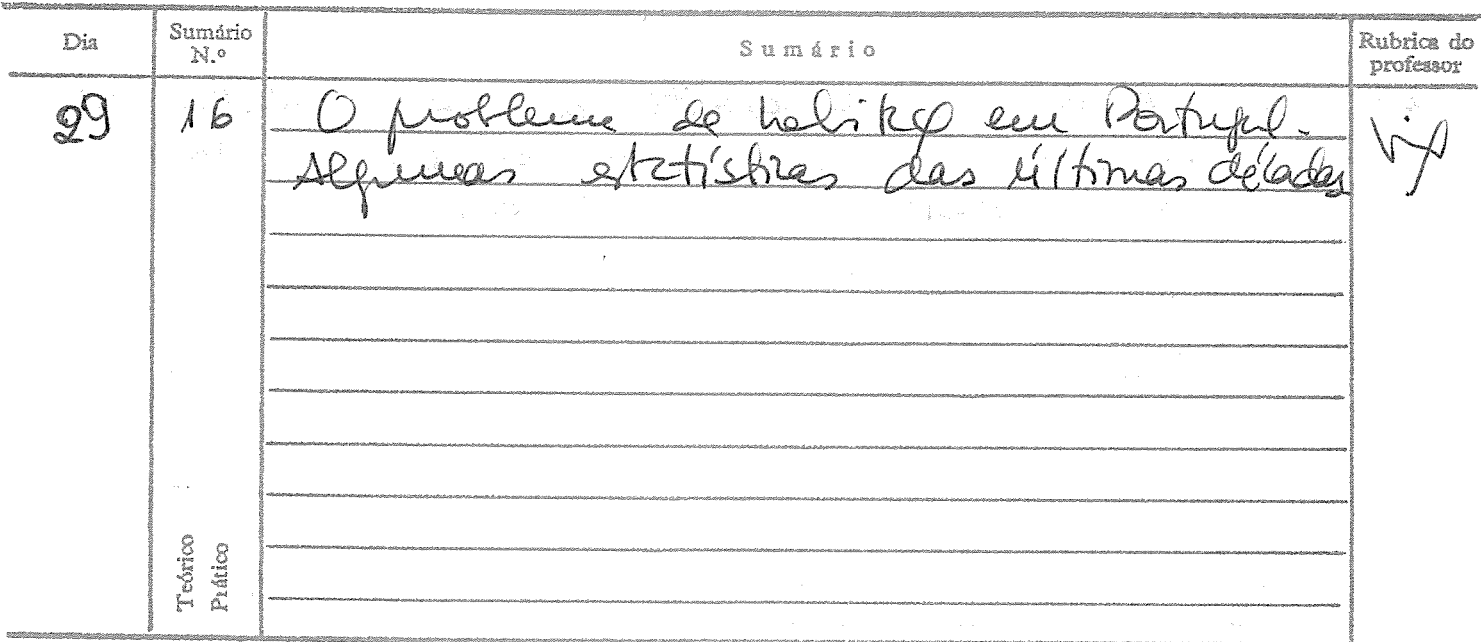 Dia Sumário N.º Sumário Rubrica do professor
29 16 O problema da habitação em Portugal.
Algumas estatísticas das últimas décadas
Teórico
Prático